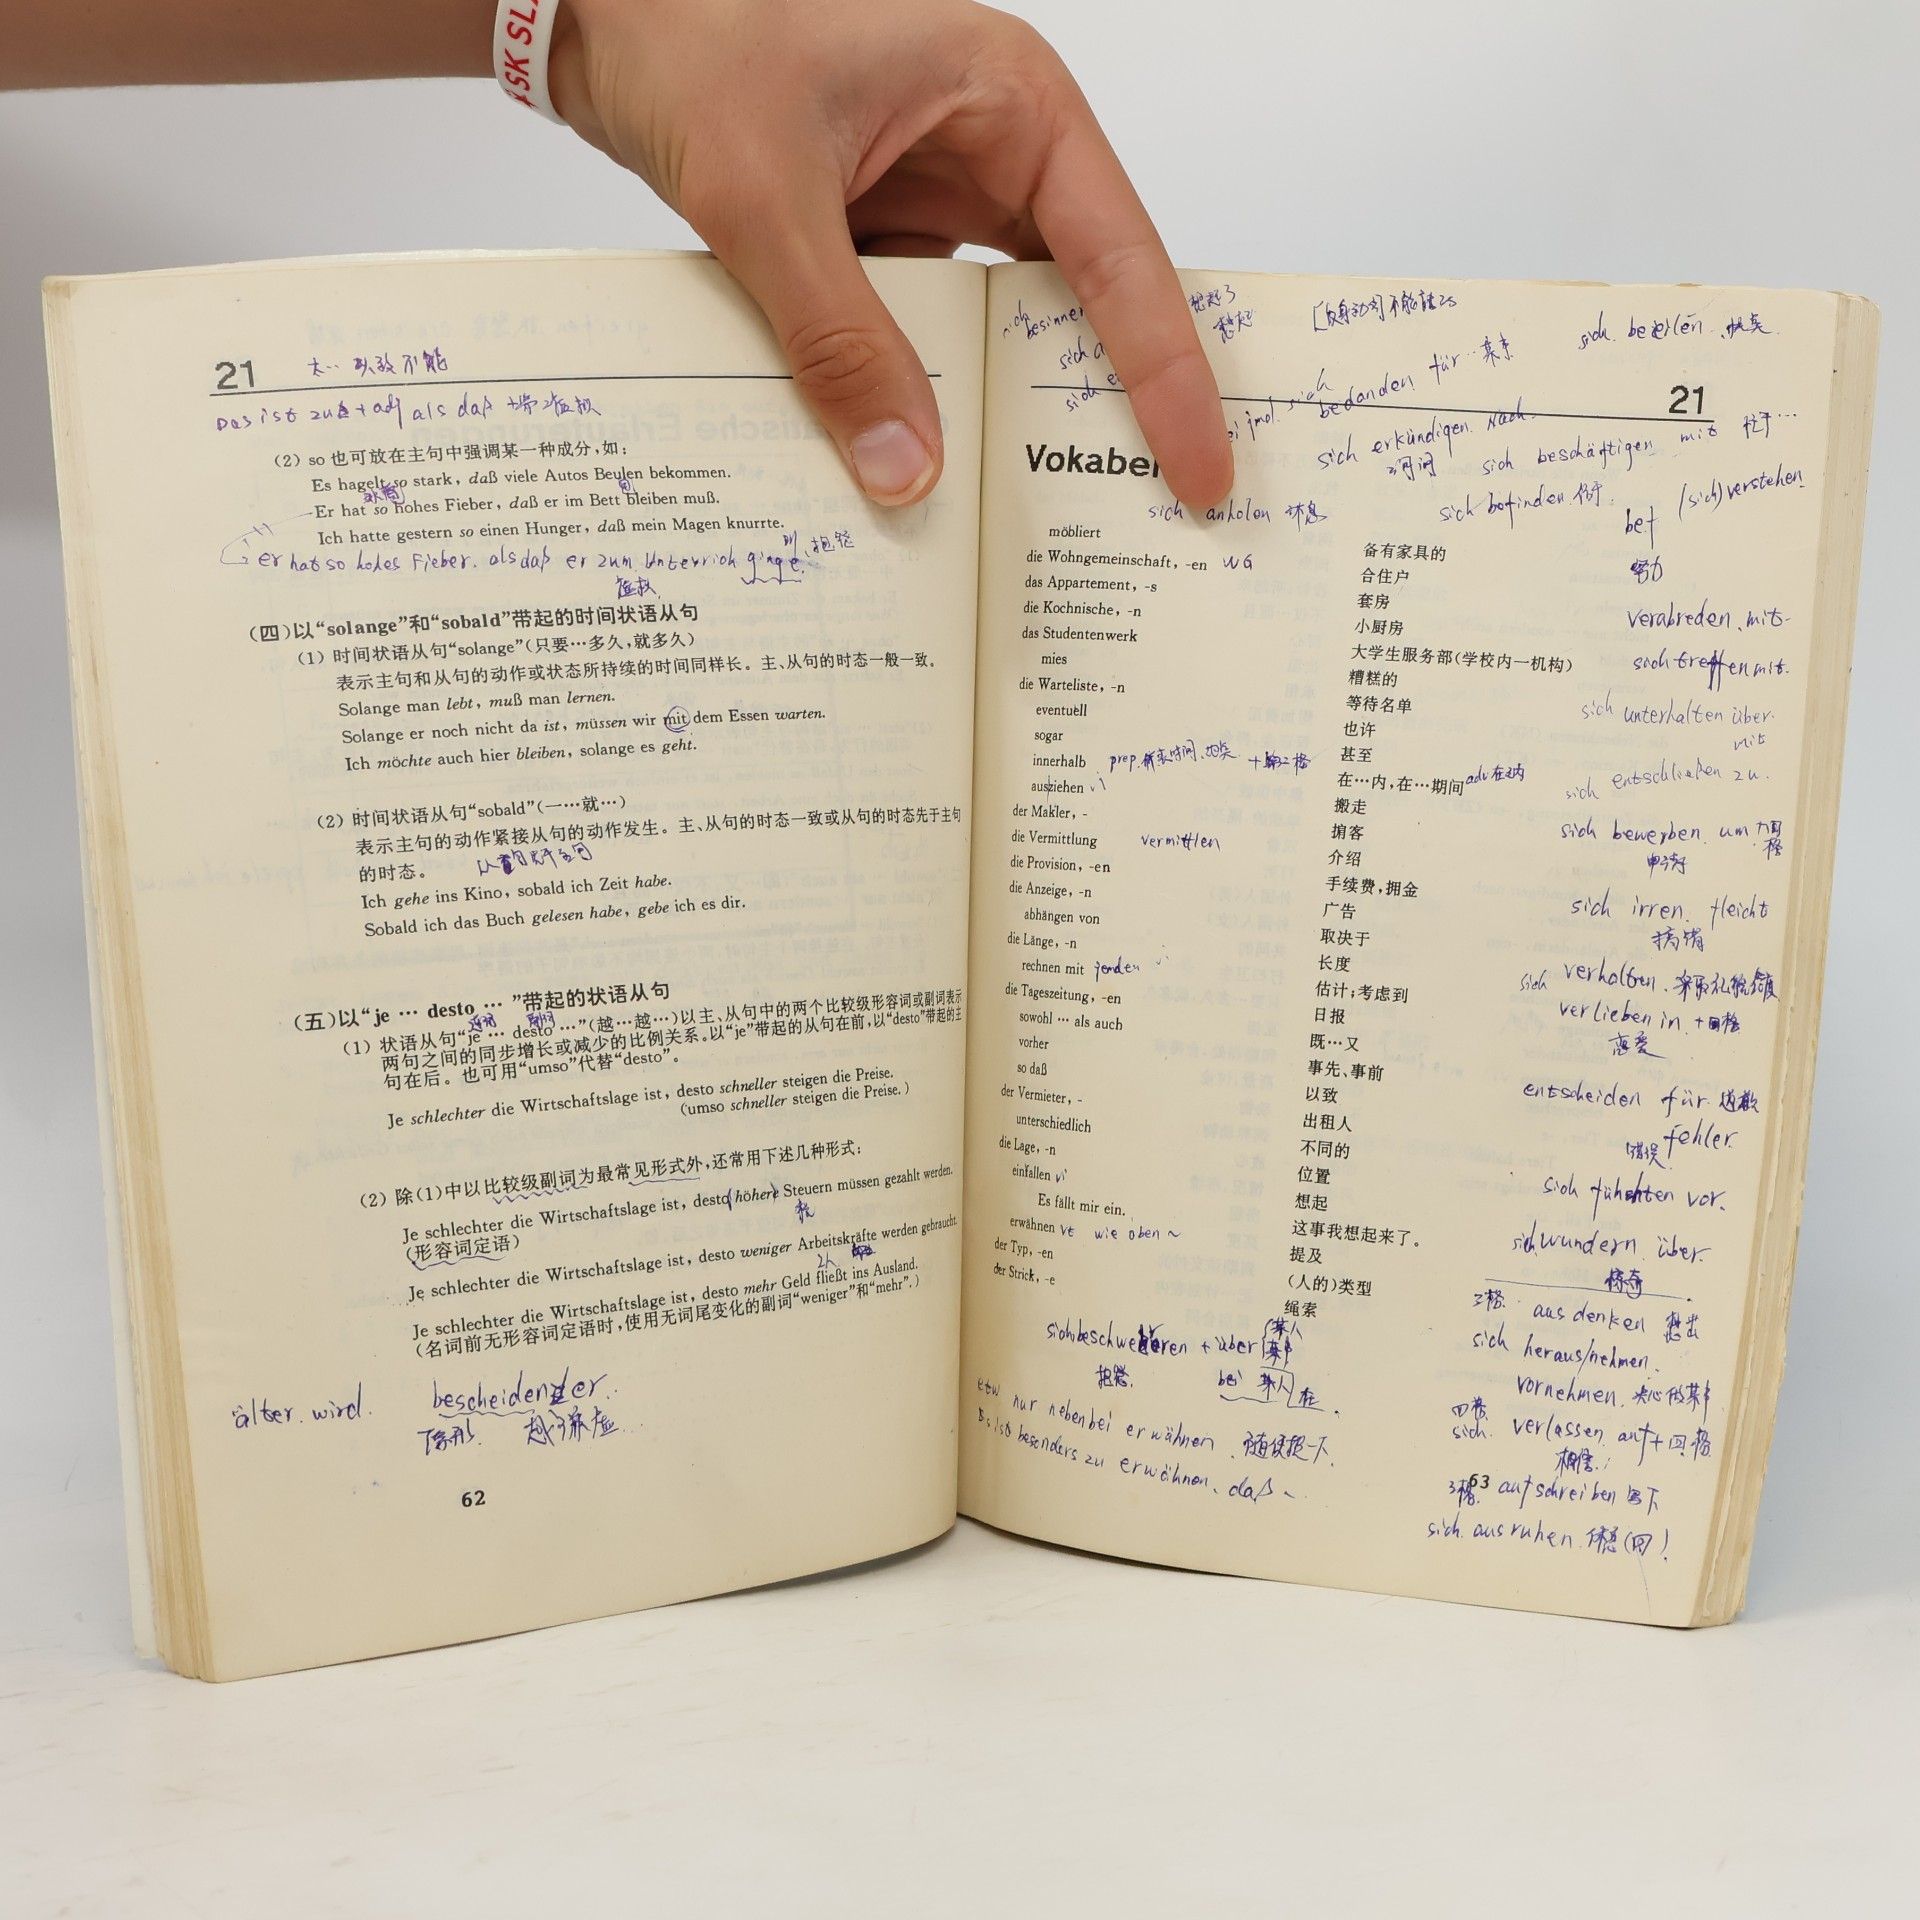 SK SL
21
太… 以致不能
Das ist zu + adj als daß +第2虚拟
(2) so 也可放在主句中强调某一种成分,如:
Es hagelt so stark, daß viele Autos Beulen bekommen.
冰雹
Er hat so hohes Fieber, daß er im Bett bleiben muß.
Ich hatte gestern so einen Hunger, daß mein Magen knurrte.
er hat so hohes Fieber. als daß er zum Unterrich ginge.
虚拟
(四)以“solange”和“sobald”带起的时间状语从句
(1) 时间状语从句“solange”(只要…多久,就多久)
表示主句和从句的动作或状态所持续的时间同样长。主、从句的时态一般一致。
Solange man lebt, muß man lernen.
Solange er noch nicht da ist, müssen wir mit dem Essen warten.
Ich möchte auch hier bleiben, solange es geht.
(2) 时间状语从句“sobald”(一…就…)
表示主句的动作紧接从句的动作发生。主、从句的时态一致或从句的时态先于主句
的时态。
Ich gehe ins Kino, sobald ich Zeit habe.
Sobald ich das Buch gelesen habe, gebe ich es dir.
(五)以“je … desto … ”带起的状语从句
(1) 状语从句“je … desto …”(越…越…)以主、从句中的两个比较级形容词或副词表示
两句之间的同步增长或减少的比例关系。以“je”带起的从句在前,以“desto”带起的主
句在后。也可用“umso”代替“desto”。
Je schlechter die Wirtschaftslage ist, desto schneller steigen die Preise.
(umso schneller steigen die Preise.)
(2) 除(1)中以比较级副词为最常见形式外,还常用下述几种形式:
Je schlechter die Wirtschaftslage ist, desto höhere Steuern müssen gezahlt werden.
(形容词定语)
Je schlechter die Wirtschaftslage ist, desto weniger Arbeitskräfte werden gebraucht.
Je schlechter die Wirtschaftslage ist, desto mehr Geld fließt ins Ausland.
(名词前无形容词定语时,使用无词尾变化的副词“weniger”和“mehr”.)
älter. wird. bescheidener..
越谦虚
62
sich besinnen
想起
sich beeilen.
21
sich bedanden für … 某事
sich erkündigen. Nach.
询问
sich beschäftigen mit 忙于…
Vokabel
sich anholen 休息
sich befinden. 位于.
(sich) verstehen.
möbliert 备有家具的
die Wohngemeinschaft, -en WG 合住户
das Appartement, -s 套房
die Kochnische, -n 小厨房
das Studentenwerk 大学生服务部(学校内一机构)
mies 糟糕的
die Warteliste, -n 等待名单
eventuell 也许
sogar 甚至
innerhalb prep. 表时间、地点 +第二格 在…内,在…期间 adv 在之内
ausziehen vi 搬走
der Makler, - 掮客
die Vermittlung vermittlen 介绍
die Provision, -en 手续费,拥金
die Anzeige, -n 广告
abhängen von 取决于
die Länge, -n 长度
rechnen mit jenden 估计;考虑到
die Tageszeitung, -en 日报
sowohl … als auch 既…又
vorher 事先、事前
so daß 以致
der Vermieter, - 出租人
unterschiedlich 不同的
die Lage, -n 位置
einfallen vi 想起
Es fällt mir ein. 这事我想起来了。
erwähnen vt wie oben ~ 提及
der Typ, -en (人的)类型
der Strick, -e 绳索
sich beschweren + über 某人
某事
抱怨. bei 某人 在
etw nur nebenbei erwähnen. 随便提一下.
Es ist besonders zu erwähnen, daß ~
努力
verabreden. mit-
sich treffen mit.
sich unterhalten über.
mit
sich entschließen zu.
sich bewerben um 四格
申请
sich irren. fleicht
搞错
sich verhalten.
verlieben in. +四格
恋爱
entscheiden für. 道歉
fehler.
错误
sich führchten vor.
sich wundern über.
惊奇
3格. aus denken 想出
sich heraus/nehmen.
vornehmen. 决心做某事
四格.
sich. verlassen auf + 四格
相信.
3格. aufschreiben 写下
63
sich. ausruhen. 休息(四)